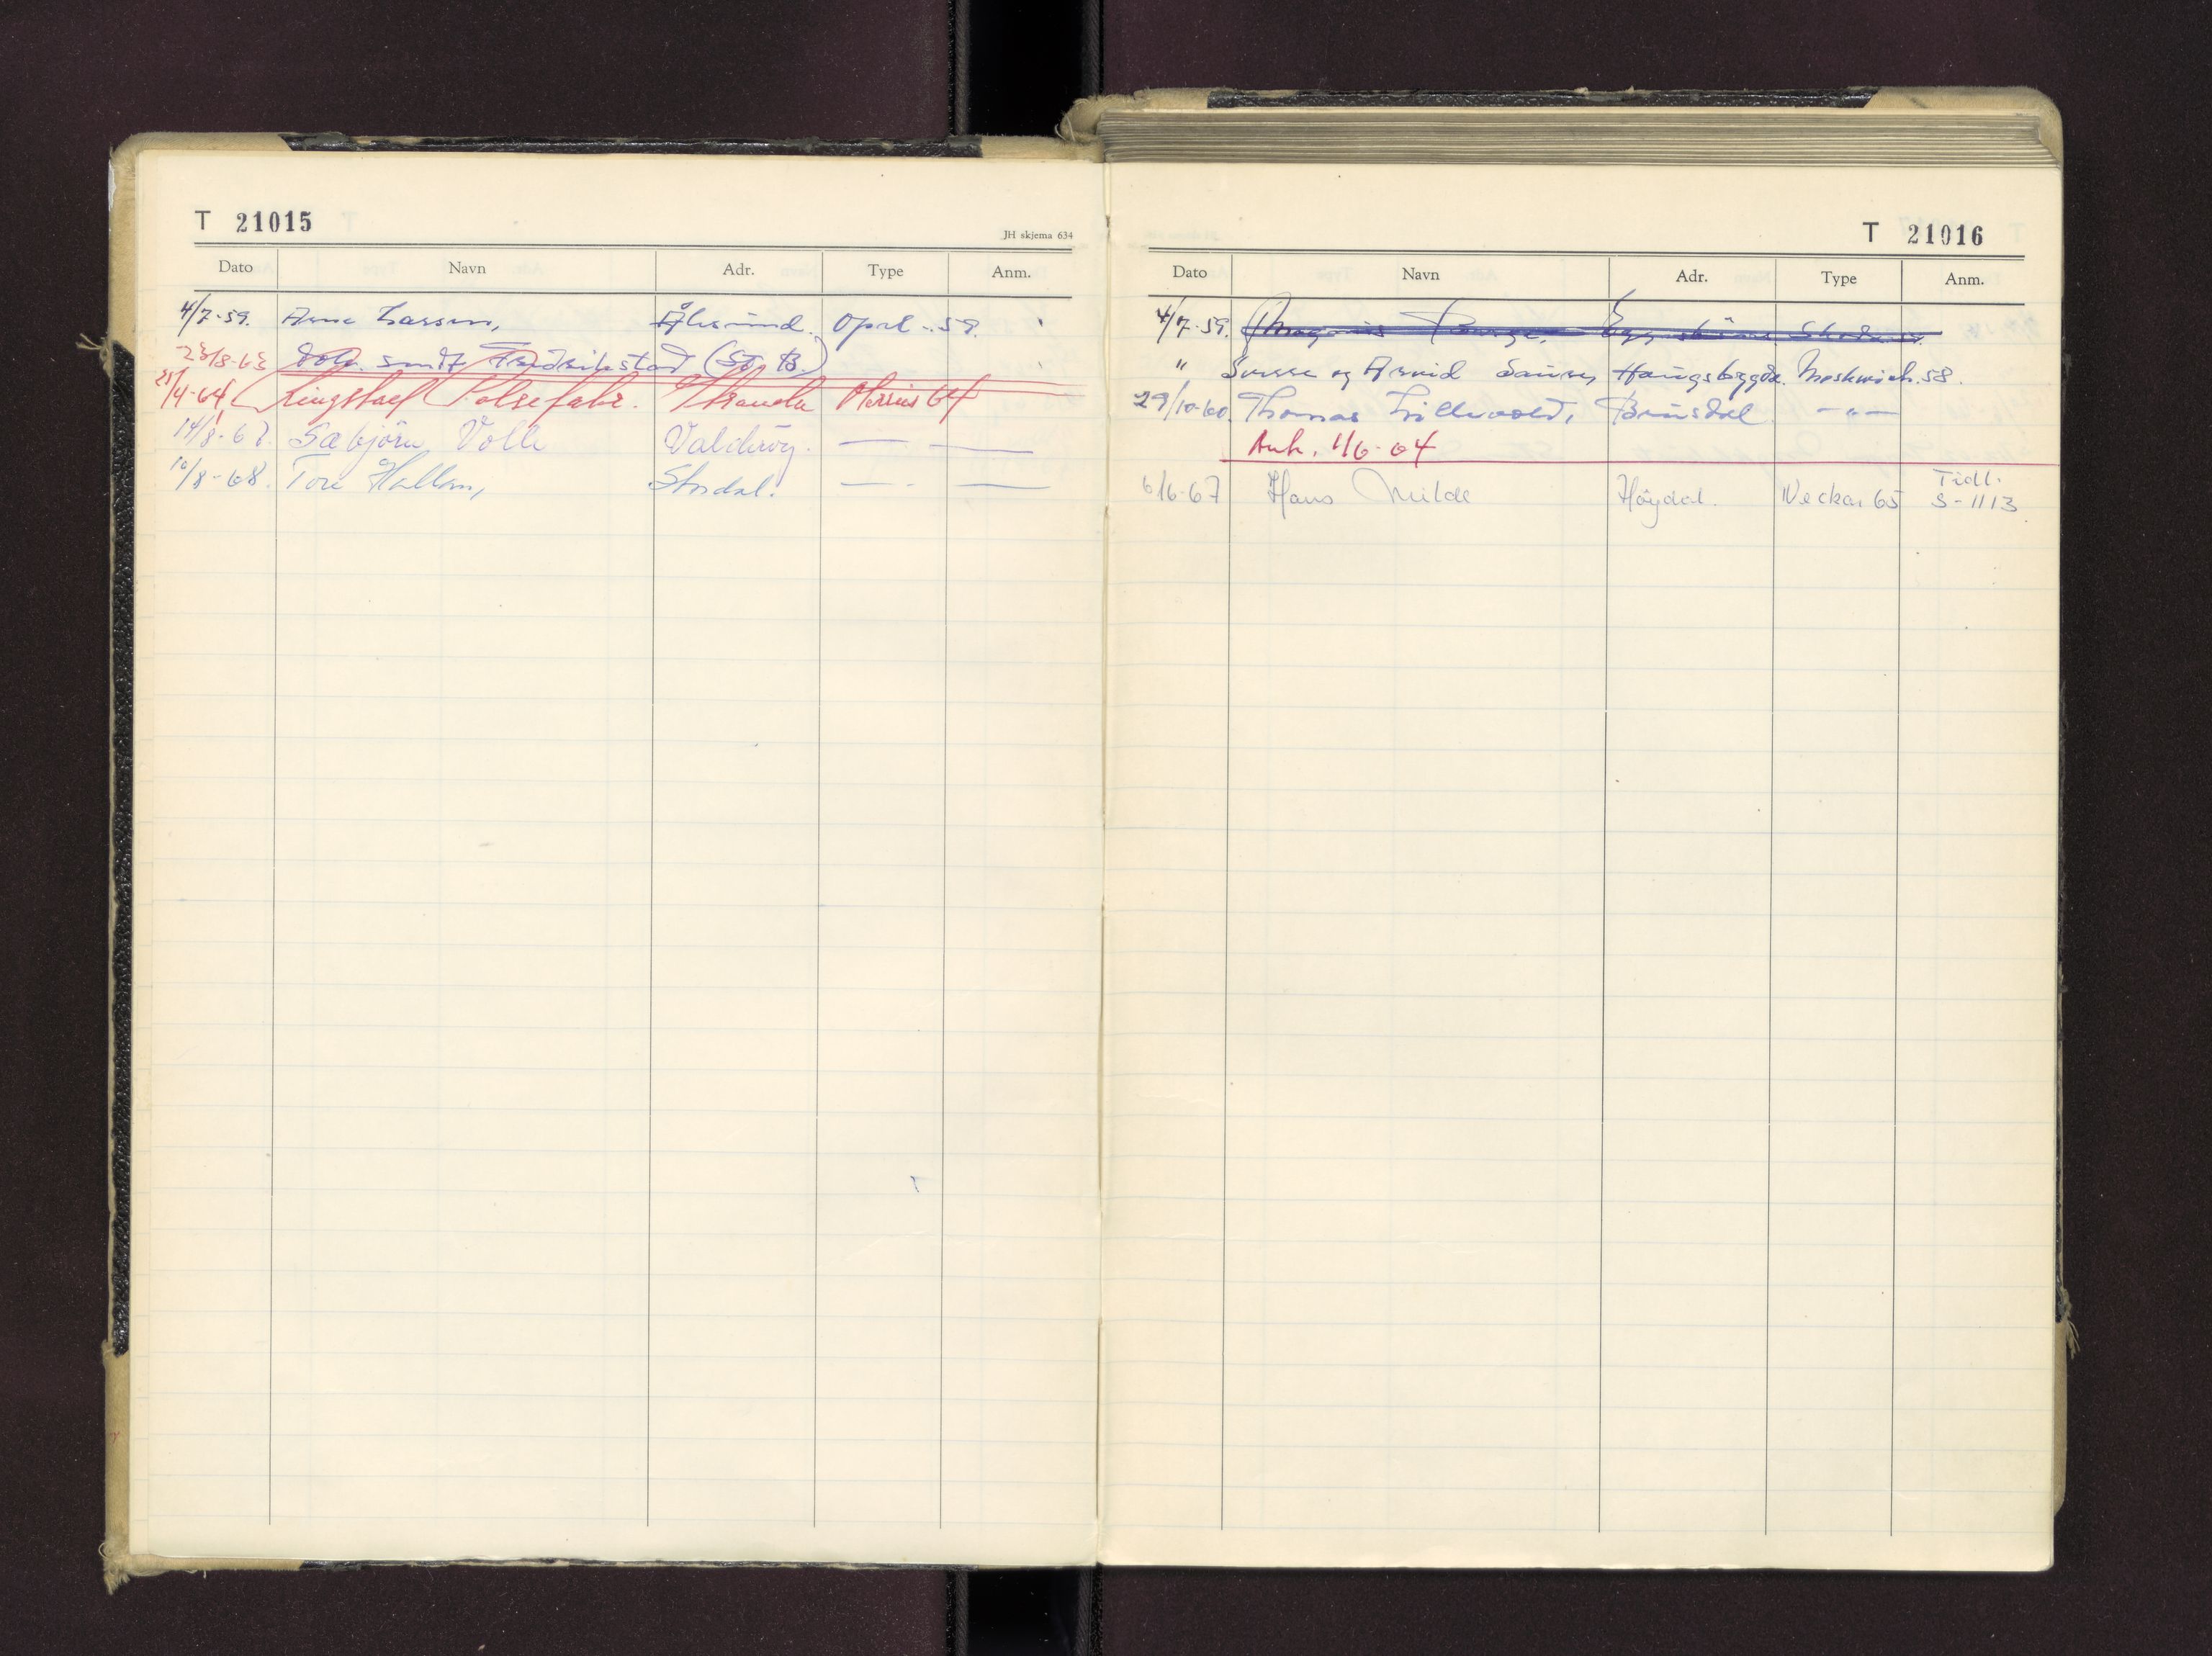 T 21015
JH skjema 634
Dato Navn Adr. Type Anm.
4/7-59. Arne Larsen, Ålesund. Opel -59.
23/8-63 Dok. sendt Fredrikstad (St. B.)
21/4-64 Ringstad Pølsefabr. Stranda Morris 64
14/8-67. Sæbjörn Volle Valderöy. — —
10/8-68. Tore Hallem, Stordal. — —
T 21016
Dato Navn Adr. Type Anm.
4/7-59. Magnus
" Sverre og Arvid Haugsbygda. Moskwich. 58.
29/10-60. Thomas Lillevold, Brusdal — " —
Avh. 1/6-64
6/6-67 Hans Milde Høydal. Neckar 65 Tidl.
S-1113